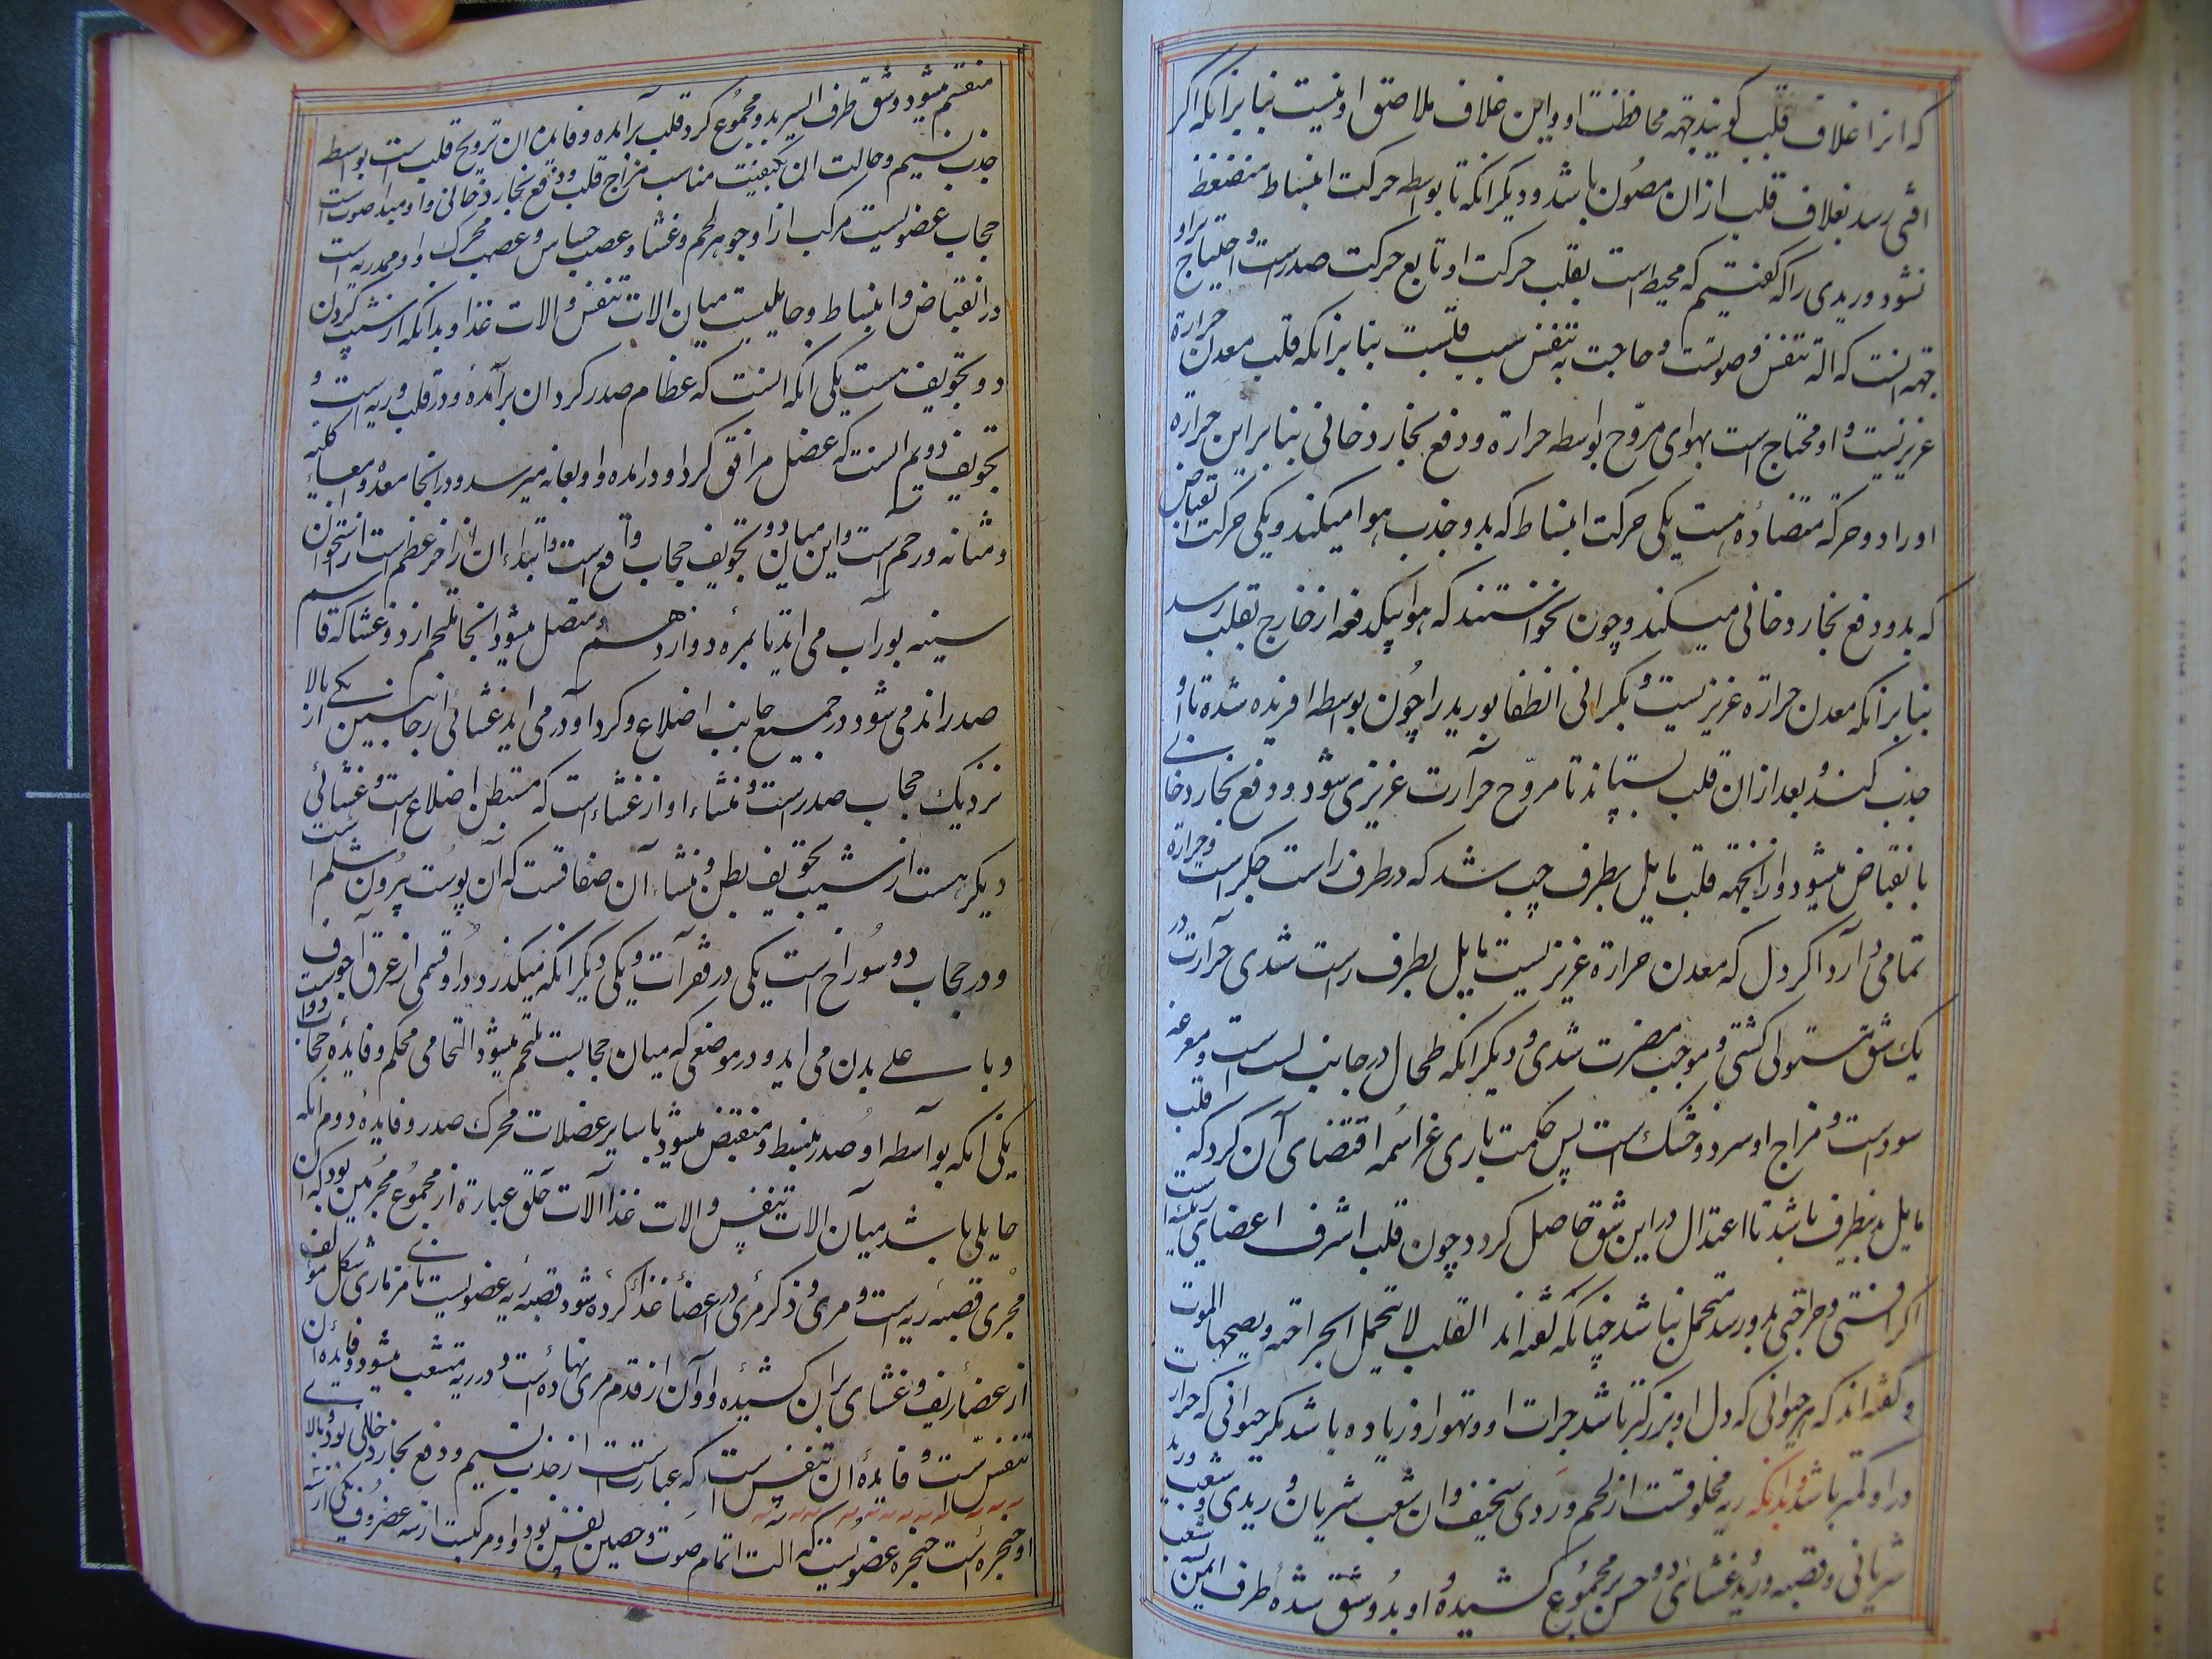 که انرا غلاف قلب کویند جهه محافظت او و این غلاف ملاصق او نیست بنا برانکه اکر
افتی رسد بغلاف قلب ازان مصون باشد و دیکر انکه تا بوسطه حرکت انبساط منضغط
نشود و وریدی را که کفتیم که محیط است بقلب حرکت او تابع حرکت صدرست و احتیاج بدو
جهه انست که الة تنفس و صوتست و حاجت به تنفس بسبب قلبست بنا برانکه قلب معدن حرارة
غریزیست و او محتاج است بهوای مروّح بواسطه حرارة و دفع بخار دخانی بنا براین حرارة
او را دو حرکة متضاده هست یکی حرکت انبساط که بدو جذب هوا میکند و یکی حرکت انقباض
که بدو دفع بخار دخانی میکند و چون نخواستند که هوا بیکدفعه از خارج بقلب رسد
بنا برانکه معدن حرارة غریزیست و بکرانی انطفا بورید را چون بوسطه افریده شده تا او
جذب کند و بعد ازان قلب بستاند تا مروّح حرآرت غریزی شود و دفع بخار دخانی
بانقباض میشود و ازانجهه قلب مایل بطرف چپ شد که در طرف راست جکر است و حرارة
تمامی دارد اکر دل که معدن حرارة غریزیست مایل بطرف راست شدی حرآرت در
یک شق مستولی کشتی و موجب مضرت شدی و دیکر انکه طحال در جانب یسار است و مفرغه
سوداست و مزاج او سرد و خشک است پس حکمت باری عز اسمه اقتضای آن کرد که قلب
مایل بدینطرف باشد تا اعتدال در این شق حاصل کردد چون قلب اشرف اعضای رئیسه است
اکر افتی و جراحتی بدو رسد متحمل نباشد چنانکه کفته اند القلب لا تحمل الجراحه و یصحبها الموت
و کفته اند که هر حیوانی که دل او بزرکتر باشد جرات او و تهور او زیاده باشد مکر حیوانی که حرارت
در او کمتر باشد و بدانکه ریه مخلوقست از لحم وردی سخیف و ان شعب شریان وریدی و شعب ورید
شریانی و قصبه وریه غشائی ذو حس بر مجموع کشیده و او بدو شق شده طرف ایمن شعب
منقسم میشود و شق طرف ایسر بدو و مجموع کرد قلب برآمده و فایده ان ترویح قلب است بواسطه
جذب نسیم و حالت ان بکیفیت مناسب مزاج قلب و دفع بخار دخانی و او مبدا صوت است
حجاب عضویست مرکب از او جوهر لحم و غشا و عصب حساس و عصب محرک و او ممد ریه است
در انقباض و انبساط و حایلیست میان الات تنفس و الات غذا و بدانکه از شیب کردن
دو تجویف هست یکی انکه انست که عظام صدر کرد ان برآمده و در قلب و ریه است و
تجویف دویم انست که عضل مراق کرد او درامده و او بعانه میرسد و در انجا معده و امعا و کلیه
و مثانه و رحم است و این میان دو تجویف حجاب واقع است و ابتداء ان از اخر عظم است از استخوان
سینه بورآب می اید تا بمره دوازدهم و متصل میشود انجا ملتحم از دو غشا که قاسم
صدر اند می شود در جمیع جانب اضلاع و کرد او در می اید غشائی از جانبین یکی از بالا
نزدیک حجاب صدر است و منشاء او از غشاء است که مستبطن اضلاع است و غشائی
دیکر هست از شیب تجویف بطن و منشاء آن صفاقست که آن پوست بیرون شلم است
و در حجاب دو سوراخ است یکی در فقرآت و یکی دیکر انکه میکذرد در او قسمی از عرق اجوف
و باعلی بدن می اید و در موضعی که میان حجابست ملتحم میشود التحامی محکم و فایده حجاب دو است
یکی انکه بواسطه او صدر منبسط و منقبض میشود با سایر عضلات محرک صدر و فایده دوم انکه
حایلی باشد میان الات تنفس و الات غذا آلات حلق عبارة از مجموع مجریین بود که ان
مجری قصبه ریه است و مری و ذکر مری در اعضاء غذا کرده شود قصبه ریه عضویست نایی مزماری شکل مولف
از غضاریف و غشای بران کشیده و آن از قدم مری نهاده است و در ریه متشعب میشود و فایده ان
تنفس است و فایده ان تنفس است که عبارتست از جذب نسیم و دفع بخار دخانی بود و بالای
او حنجره است حنجره عضویست که الت اتمام صوت و حصین نفس بود و او مرکبست از سه غضروف یکی ازینها